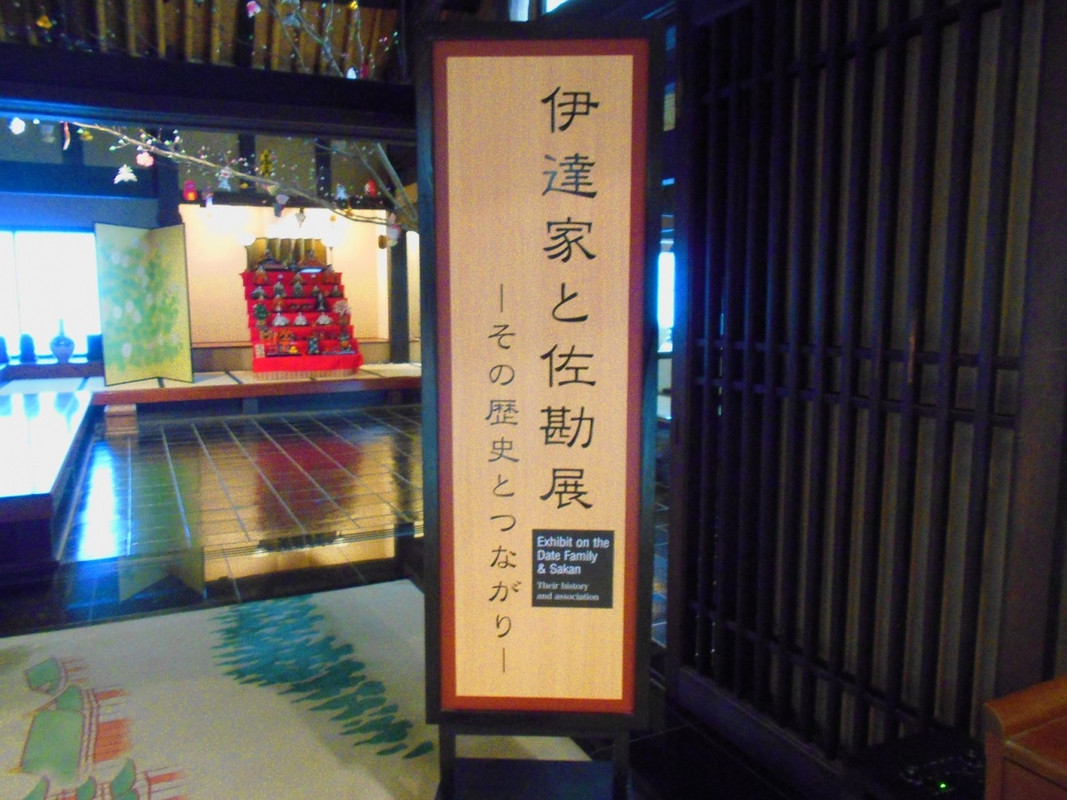 伊達家と佐勘展
―その歴史とつながり―
Exhibit on the
Date Family
& Sakan
Their history
and association